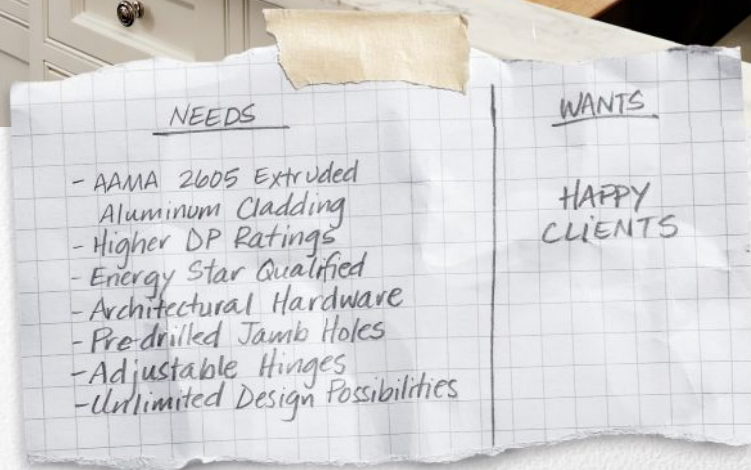 NEEDS
- AAMA 2605 Extruded
Aluminum Cladding
- Higher DP Ratings
- Energy Star Qualified
- Architectural Hardware
- Pre-drilled Jamb Holes
- Adjustable Hinges
- Unlimited Design Possibilities
WANTS
HAPPY
CLIENTS